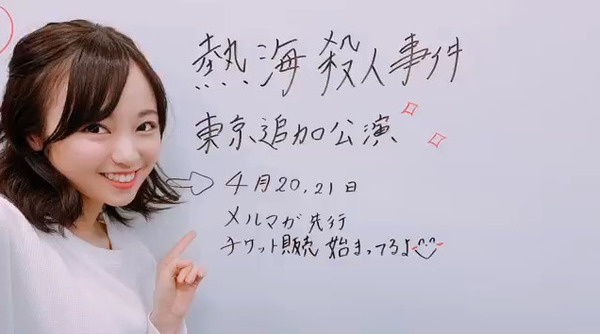 熱海殺人事件
東京追加公演
4月20,21日
メルマガ先行
チケット販売 始まってるよ